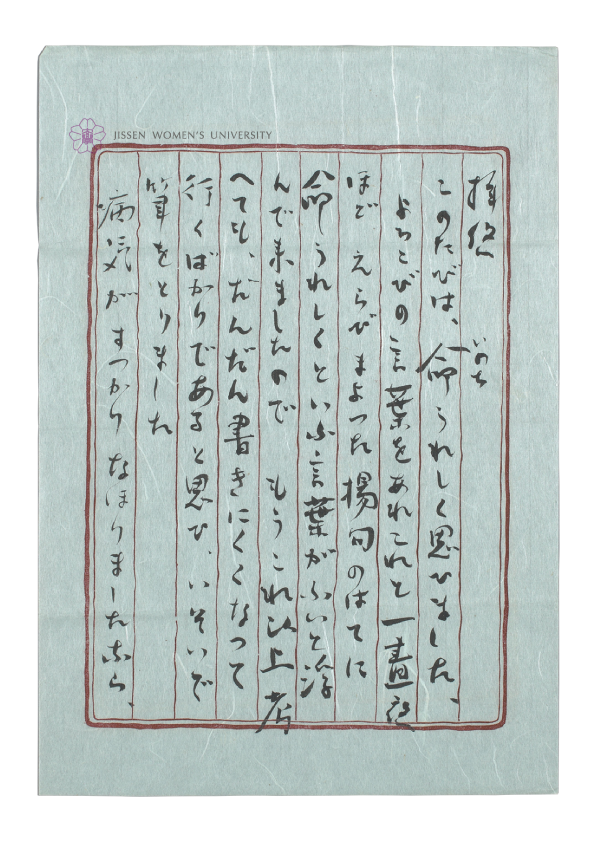 JISSEN WOMEN'S UNIVERSITY
拝啓
このたびは、命うれしく思ひました、
いのち
よろこびの言葉をあれこれと一晝夜
ほど えらびまよった揚句のはてに
命うれしくといふ言葉がふいと浮
んで来ましたので もうこれ以上考
へても、だんだん書きにくくなって
行くばかりであると思ひ、いそいで
筆をとりました
病気がすっかりなほりましたなら、